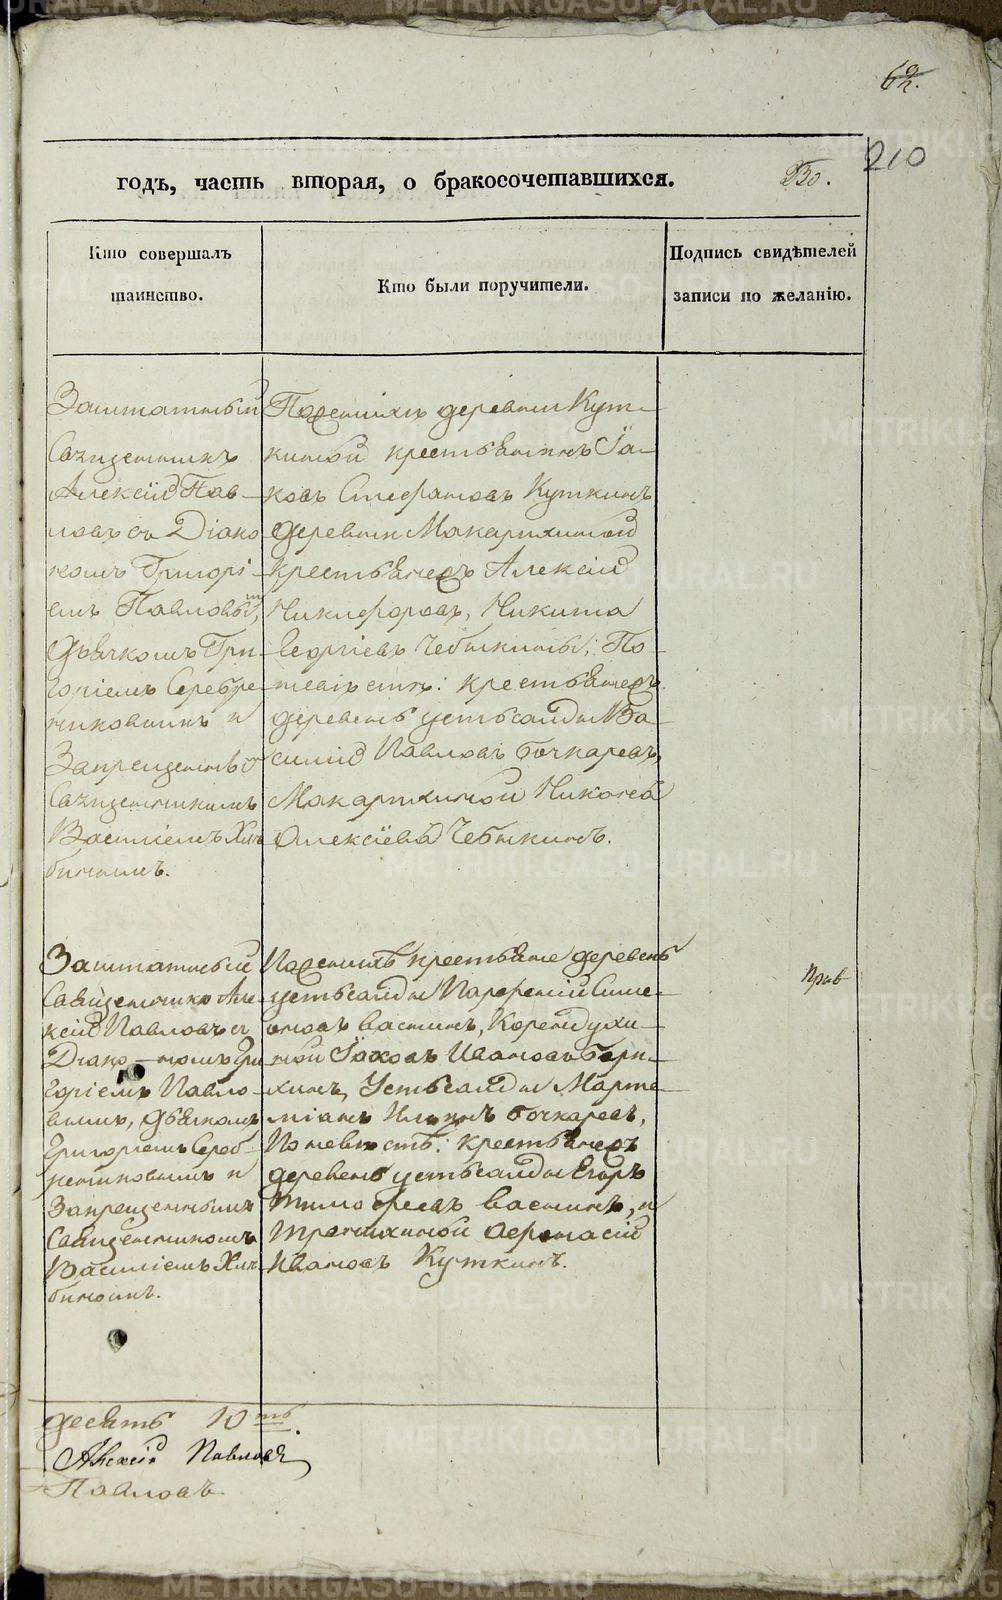 210
годъ, часть вторая, о бракосочетавшихся.
Кто совершалъ
таинство.
Кто были поручители.
Подпись свидѣтелей
записи по желанію.
Заштатный
Священникъ
Алексій Пав-
ловъ съ Діако
номъ Григорі-
емъ Павловым,
Дьячкомъ Гри-
горіемъ Серебре-
никовымъ и
Запрещенны
Священникомъ
Василіемъ Хле
бинымъ.
По женихѣ деревни Кут-
киной крестьянинъ Іа-
ковъ Стефановъ Куткинъ
деревни Макарихиной
крестьяне Алексій
Никифоровъ, Никита
Георгіевъ Чебыкины; По
невѣстѣ: крестьяне
деревень Устьсалды Ва-
силій Павловъ Бочкаревъ,
Макарихиной
Алексіевъ Чебыкинъ.
Заштатный
Священникъ Але-
ксій Павловъ съ
Діако-номъ Гри
горіемъ Павло-
вымъ, Дьячкомъ
Григоріемъ Сереб-
рениковымъ и
Запрещеннымъ
Священникомъ
Василіемъ Хле-
бинымъ.
По женихѣ крестьяне деревень
Устьсалды Парфеній Симе-
оновъ Васнинъ,
Іаковъ Ивановъ
Устьсалды Марти-
міанъ Бочкаревъ,
По невѣстѣ: крестьяне
деревень Устьсалды Егоръ
Тимофеевъ Васнинъ, и
Афонасій
Ивановъ Куткинъ.
десять 10ть.
Алексій Павловъ
Павловъ